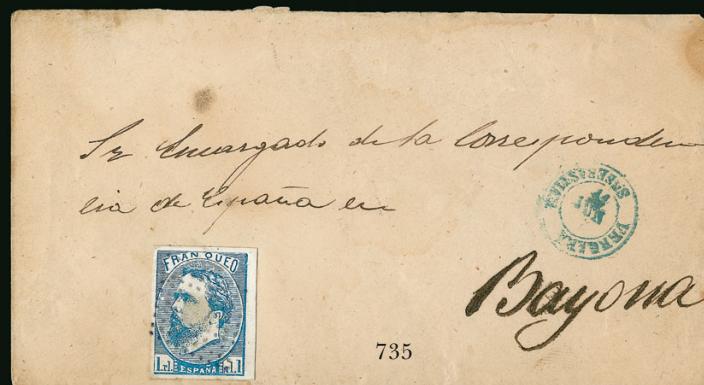 Sr Encargado de la Corresponden
cia de España en
VERGARA
S. SEBASTIAN
Bayona
FRANQUEO
1 rl. ESPAÑA rl. 1
735